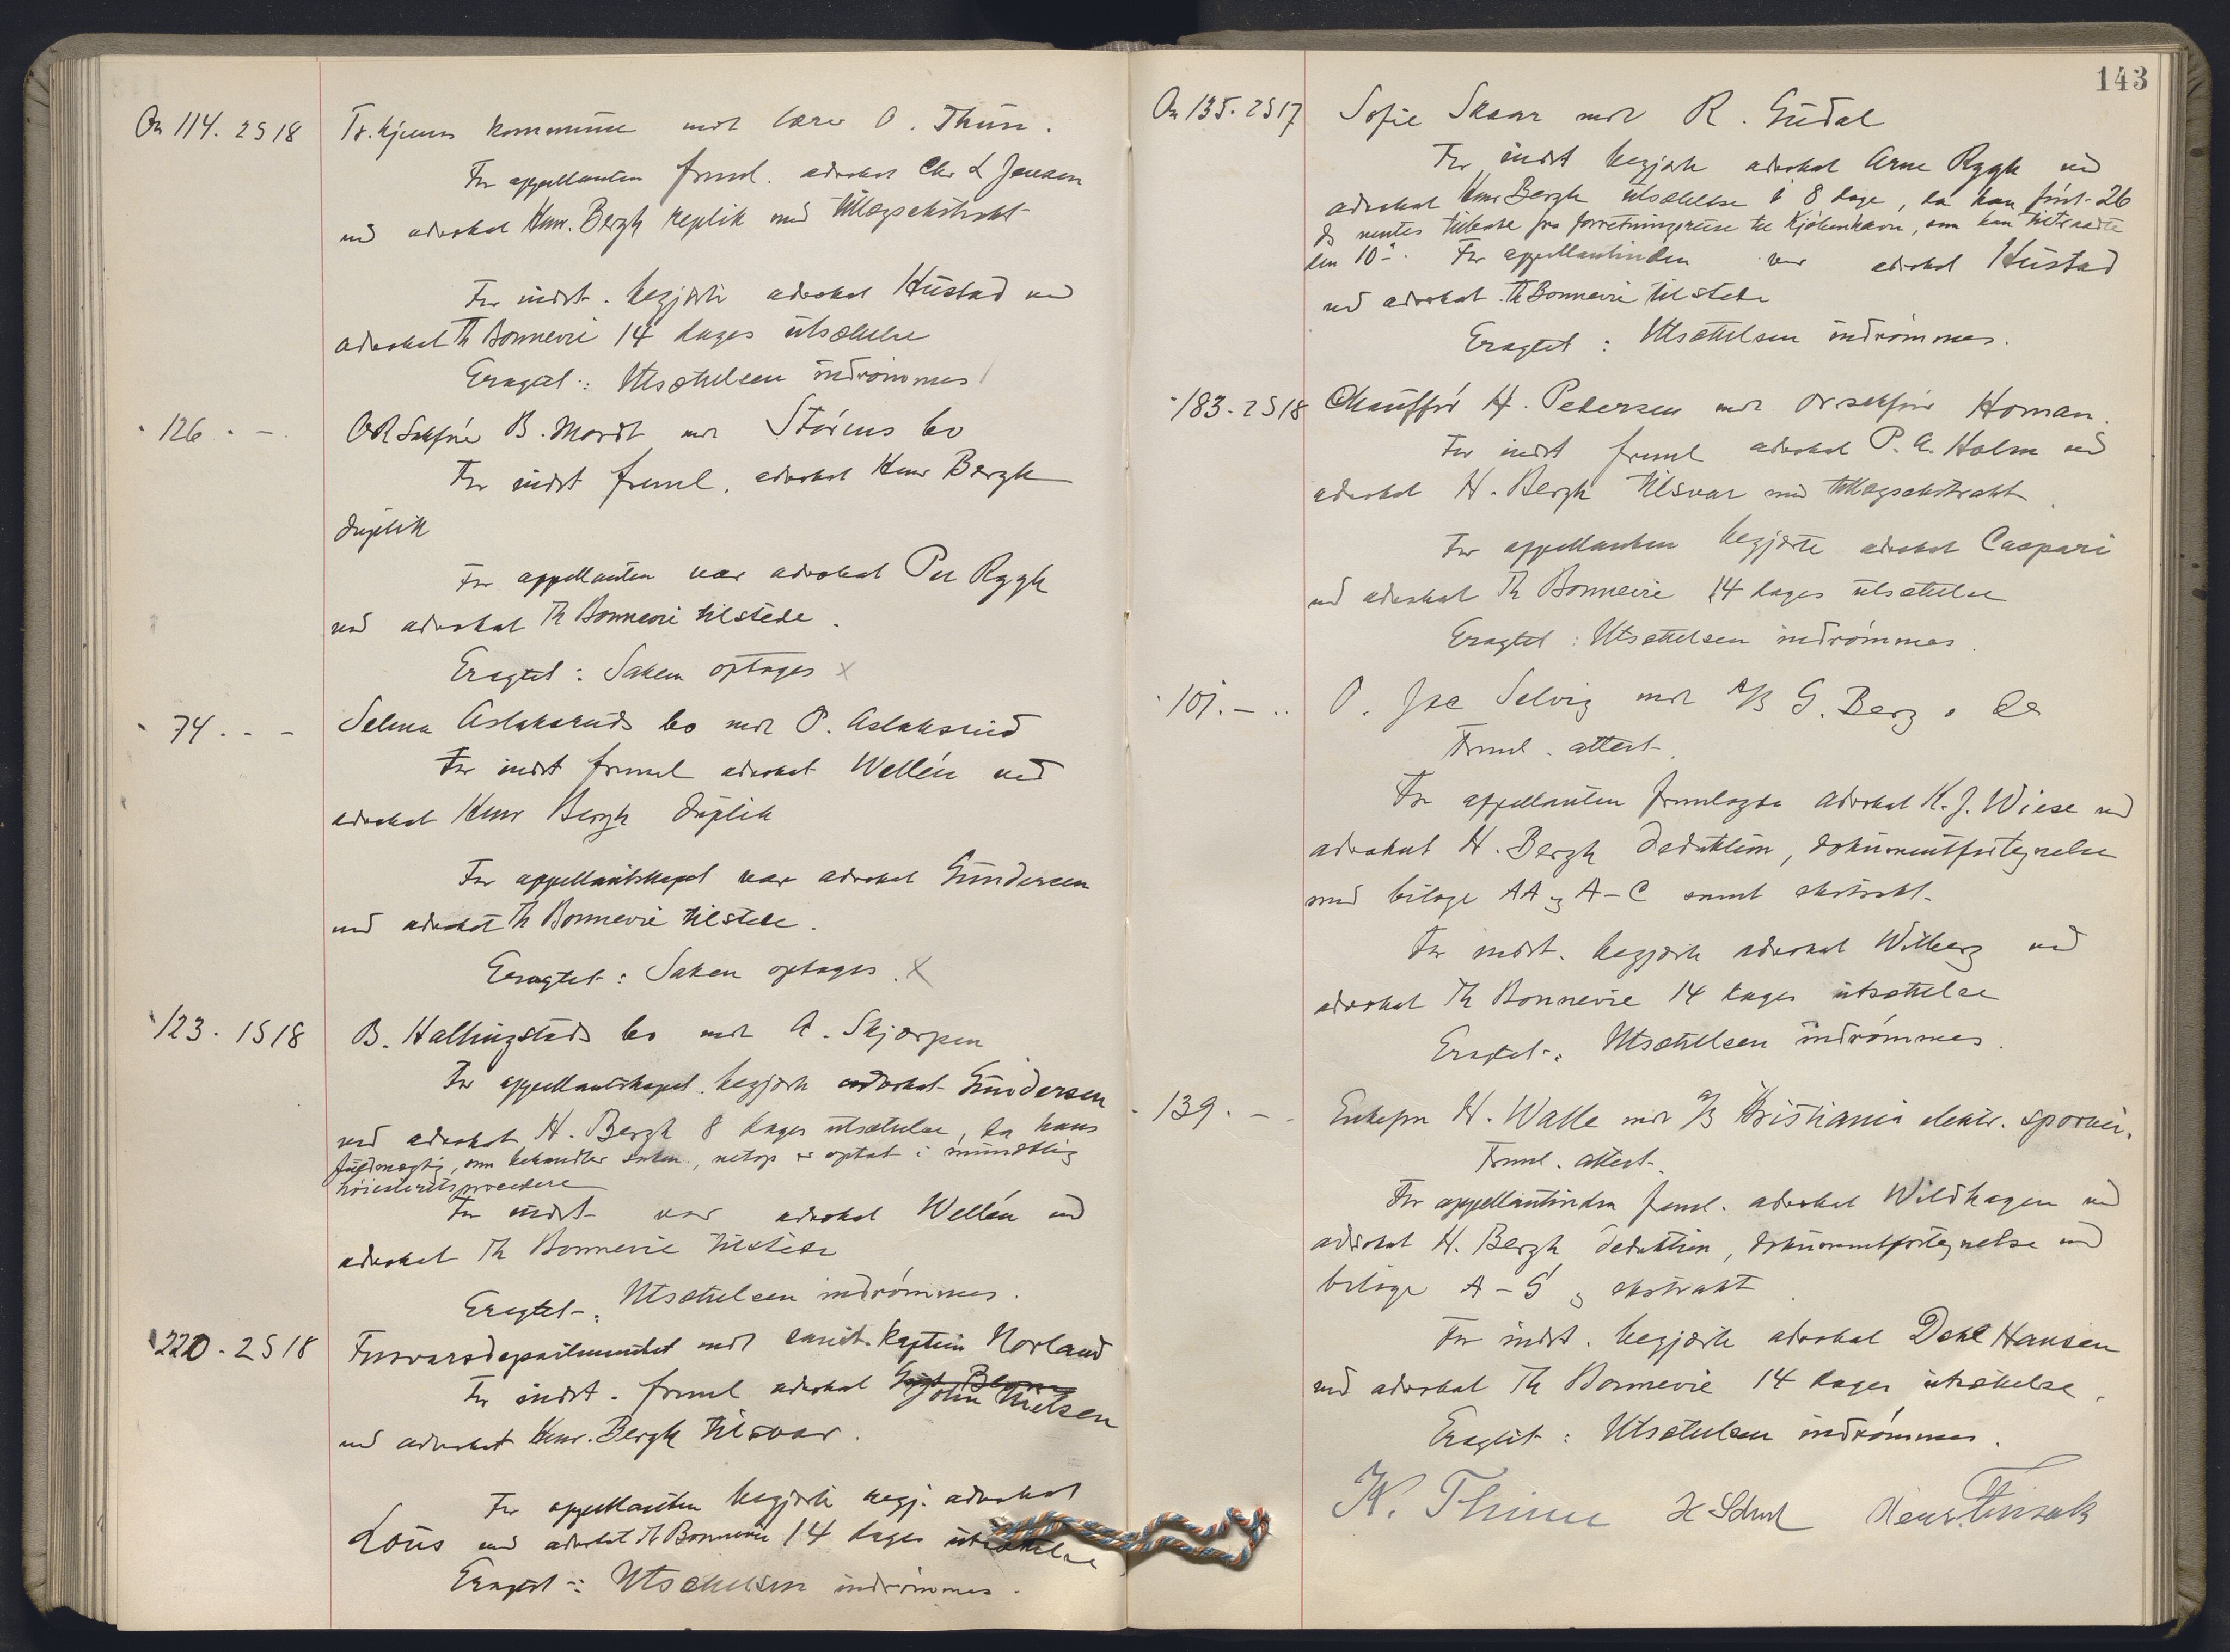 An 114. 2S18 kommune mot lærer O. Thune.
For appellanten freml. advokat Chr L Jensen
ved advokat Henr. Bergh replik med tillægsekstrakt
For indst. begjærte advokat Hustad ved
advokat Th Bonnevie 14 dages utsættelse
Eragtet: Utsættelsen indrømmes
126. - B. Mordt mot Størens bo
For indst freml. advokat Henr Bergh
duplik
For appellanten var advokat Per Rygh
ved advokat Th Bonnevie tilstede.
Eragtet: Saken optages x
74. - - Selma Aslaksruds bo mot O. Aslaksrud
For indst freml advokat Wellén ved
advokat Henr Bergh duplik
For appellantskapet var advokat Gundersen
ved advokat Th Bonnevie tilstede.
Eragtet: Saken optages. x
123. 1S18 B. Hallingstads bo mot A. Skjørpen
For appellantskapet begjærte advokat Gundersen
ved advokat H. Bergh 8 dages utsættelse, da hans
fuldmægtig, som behandler saken, netop er optat i mundtlig
høiesteretsprocedere
For indst var advokat Wellén ved
advokat Th Bonnevie tilstede
Eragtet: Utsættelsen indrømmes.
220. 2S18 Forsvarsdepartementet mot sanit. kaptein Norland
For indst. freml advokat John Nielsen
ved advokat Henr. Bergh tilsvar.
For appellanten begjærte regj. advokat
Lous ved advokat Th Bonnevie 14 dages utsættelse
Eragtet: Utsættelsen indrømmes.
143
An 135. 2S17 Sofie Skaar mot R. Gudal
For indst begjærte advokat Arne Rygh ved
advokat Henr Bergh utsættelse i 8 dage, da han først 26
ds ventes tilbake fra forretningsreise til Kjøbenhavn, som han tiltraadte
den 10. For appellantinden var advokat Hustad
ved advokat Th Bonnevie tilstede
Eragtet: Utsættelsen indrømmes.
183. 2S18 Chauffør H. Petersen mot Homan.
For indst freml advokat P. A. Holm ved
advokat H. Bergh tilsvar med tillægsekstrakt.
For appellanten begjærte advokat Caspari
ved advokat Th Bonnevie 14 dages utsættelse
Eragtet: Utsættelsen indrømmes.
101. - O. Jac Selvig mot A/S G. Berg & Co
Freml. attest.
For appellanten fremlagde advokat K. J. Wiese ved
advokat H. Bergh deduktion, dokumentfortegnelse
med bilage AA og A-C samt ekstrakt.
For indst. begjærte advokat Wilberg ved
advokat Th Bonnevie 14 dages utsættelse
Eragtet: Utsættelsen indrømmes.
139. - Enkefru H. Walle mot A/S Kristiania elektr. sporvei.
Freml. attest.
For appellantinden freml. advokat Wildhagen ved
advokat H. Bergh deduktion, dokumentfortegnelse med
bilage A-G og ekstrakt.
For indst. begjærte advokat Dahl Hansen
ved advokat Th Bonnevie 14 dages utsættelse.
Eragtet: Utsættelsen indrømmes.
K. Thinn